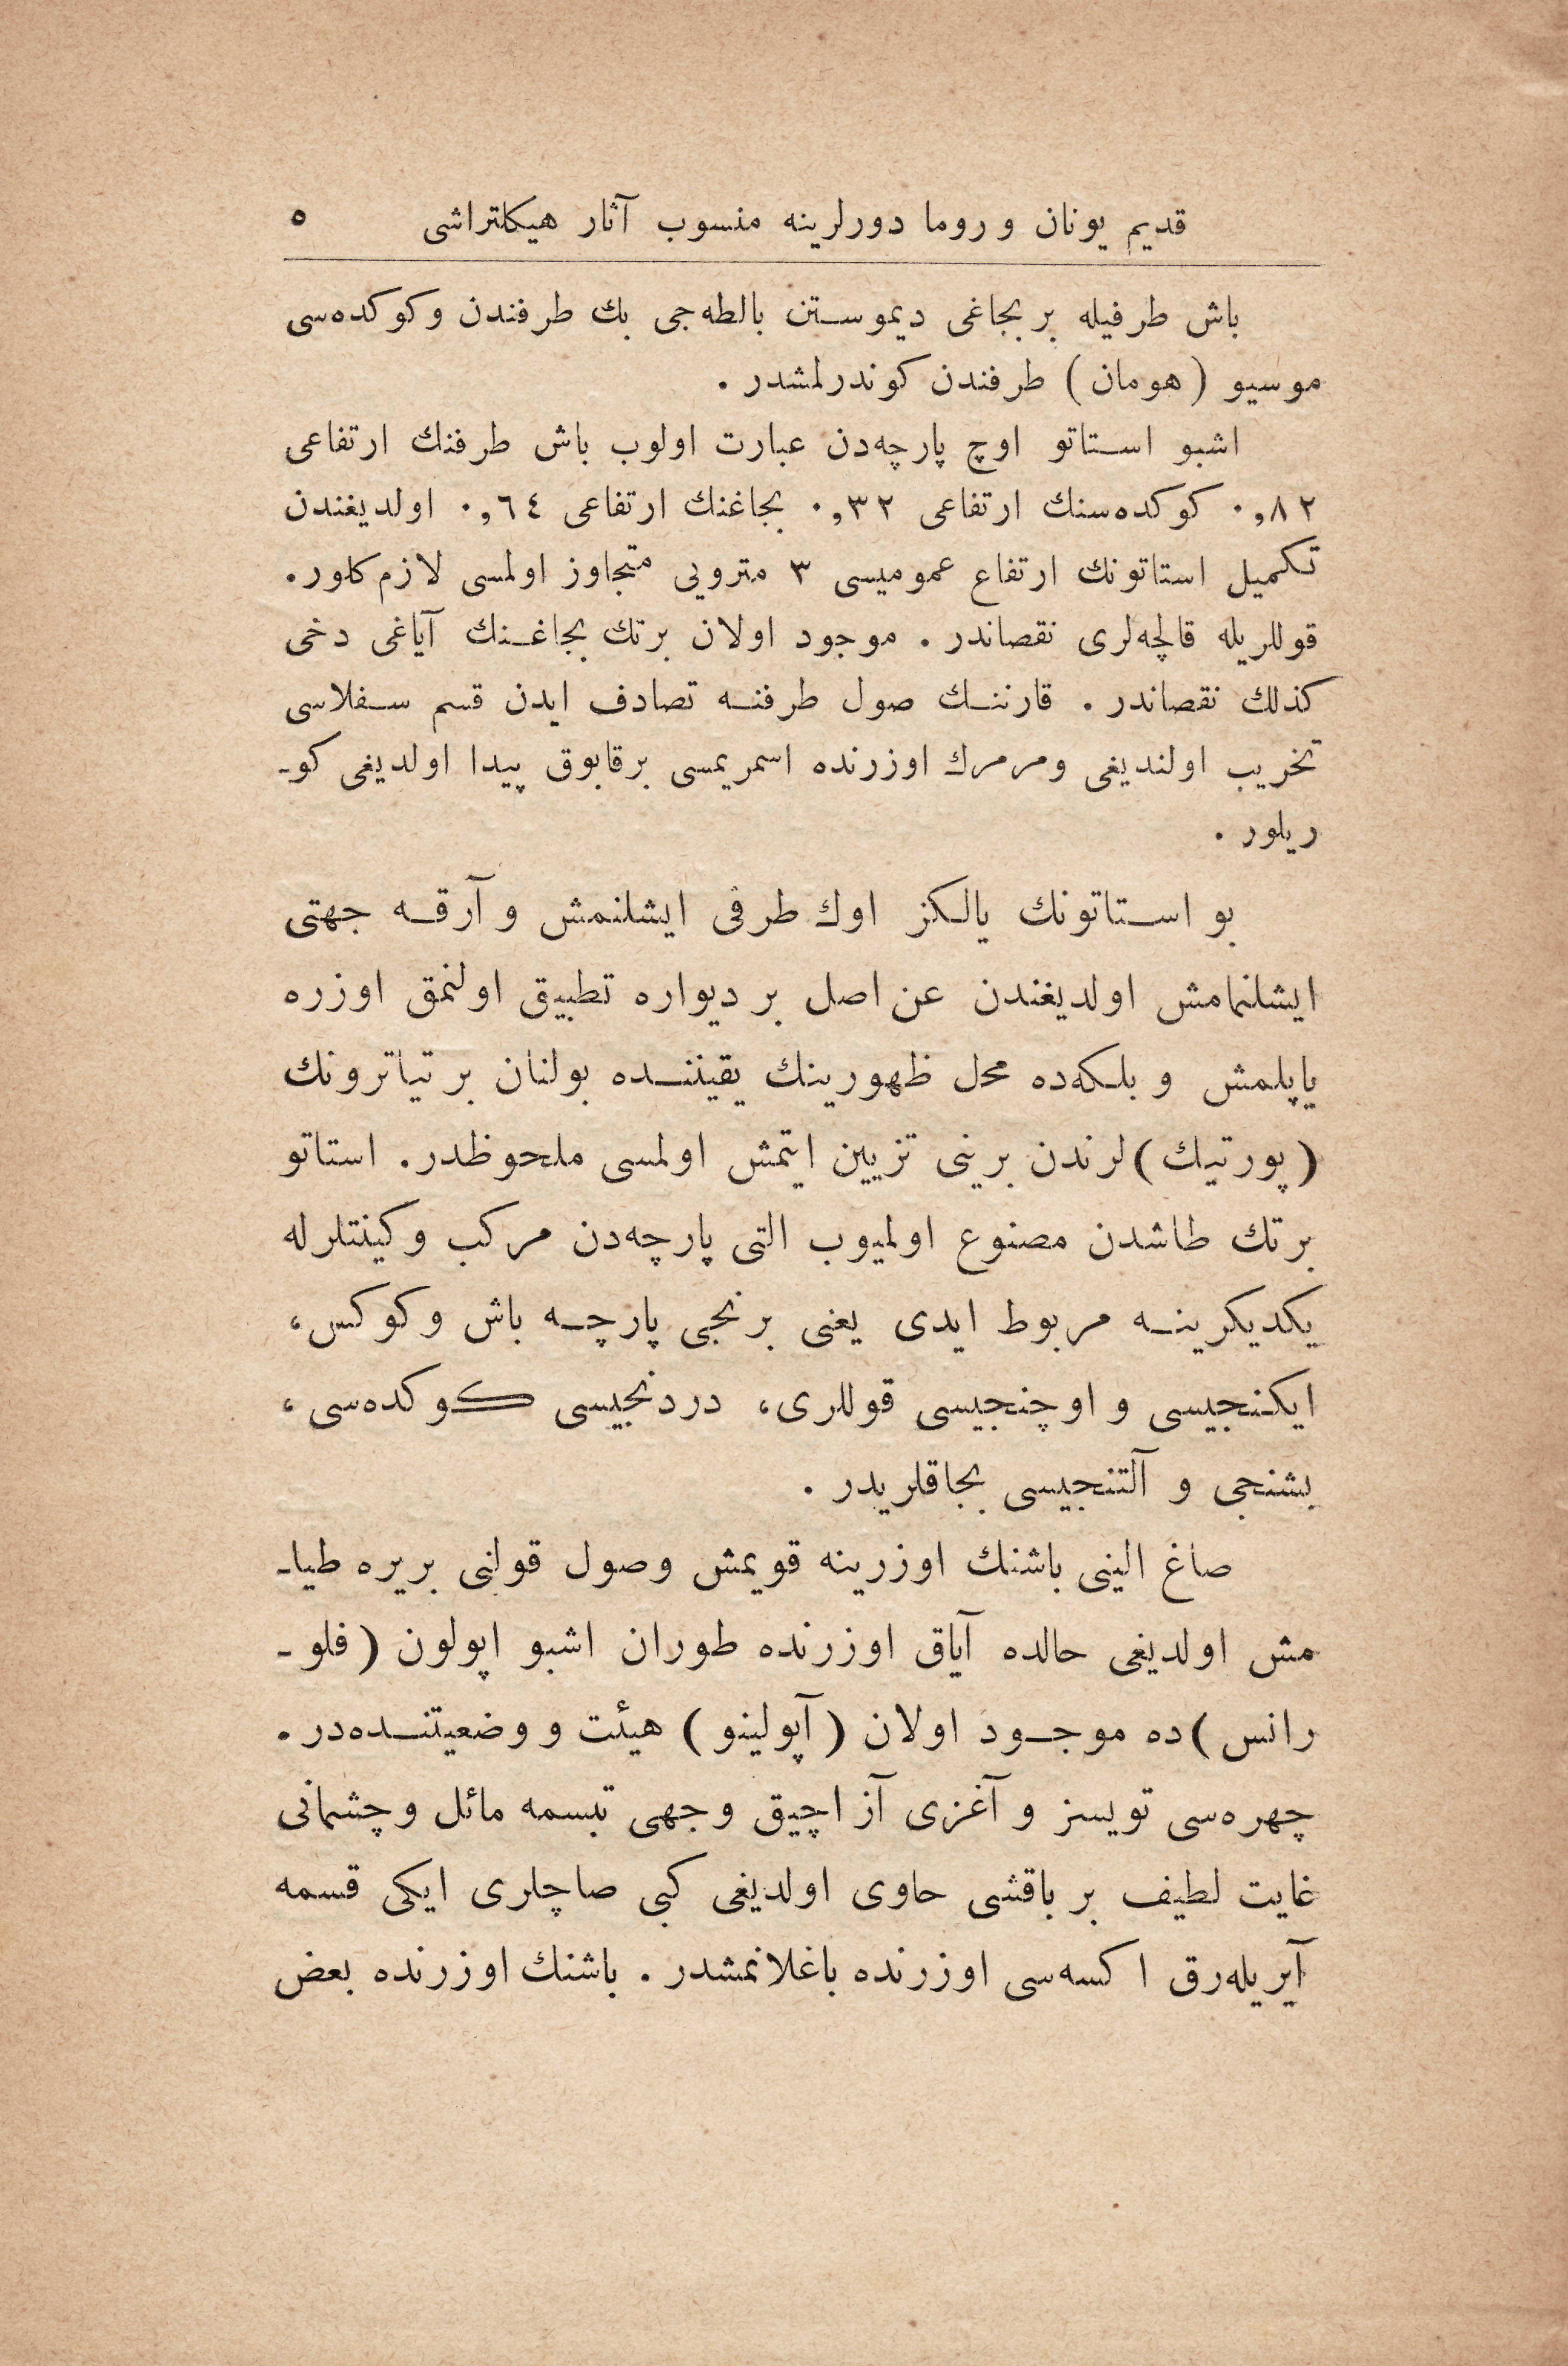 قديم يونان و روما دورلرينه منسوب آثار هيكلتراشى ٥
باش طرفيله بر بجاغى ديموستن بالطه‌جى بك طرفندن و كوكده‌سى
موسيو (هومان) طرفندن كوندرلمشدر .
اشبو استاتو اوچ پارچه‌دن عبارت اولوب باش طرفنك ارتفاعى
٠,٨٢ كوكده‌سنك ارتفاعى ٠,٣٢ بجاغنك ارتفاعى ٠,٦٤ اولديغندن
تكميل استاتونك ارتفاع عموميسى ٣ مترويى متجاوز اولمسى لازم كلور.
قوللريله قالچه‌لرى نقصاندر . موجود اولان برتك بجاغنك آياغى دخى
كذلك نقصاندر . قارننك صول طرفنه تصادف ايدن قسم سفلاسى
تخريب اولنديغى ومرمرك اوزرنده اسمريمسى برقابوق پيدا اولديغى كو-
ريلور .
بو استاتونك يالكز اوك طرفى ايشلنمش و آرقه جهتى
ايشلنمامش اولديغندن عن اصل بر ديواره تطبيق اولنمق اوزره
ياپلمش و بلكه‌ده محل ظهورينك يقيننده بولنان بر تياترونك
(پورتيك)لرندن برينى تزيين ايتمش اولمسى ملحوظدر. استاتو
برتك طاشدن مصنوع اولميوب التى پارچه‌دن مركب و كينتلرله
يكديكرينه مربوط ايدى يعنى برنجى پارچه باش و كوكس،
ايكنجيسى و اوچنجيسى قوللرى، دردنجيسى كوكده‌سى،
بشنجى و آلتنجيسى بجاقلريدر .
صاغ الينى باشنك اوزرينه قويمش وصول قولنى بريره طيا-
مش اولديغى حالده آياق اوزرنده طوران اشبو اپولون (فلو-
رانس)ده موجود اولان (آپولينو) هيئت و وضعيتنده‌در.
چهره‌سى تويسز و آغزى آز اچيق وجهى تبسمه مائل و چشمانى
غايت لطيف بر باقشى حاوى اولديغى كبى صاچلرى ايكى قسمه
آيريله‌رق اكسه‌سى اوزرنده باغلانمشدر . باشنك اوزرنده بعض